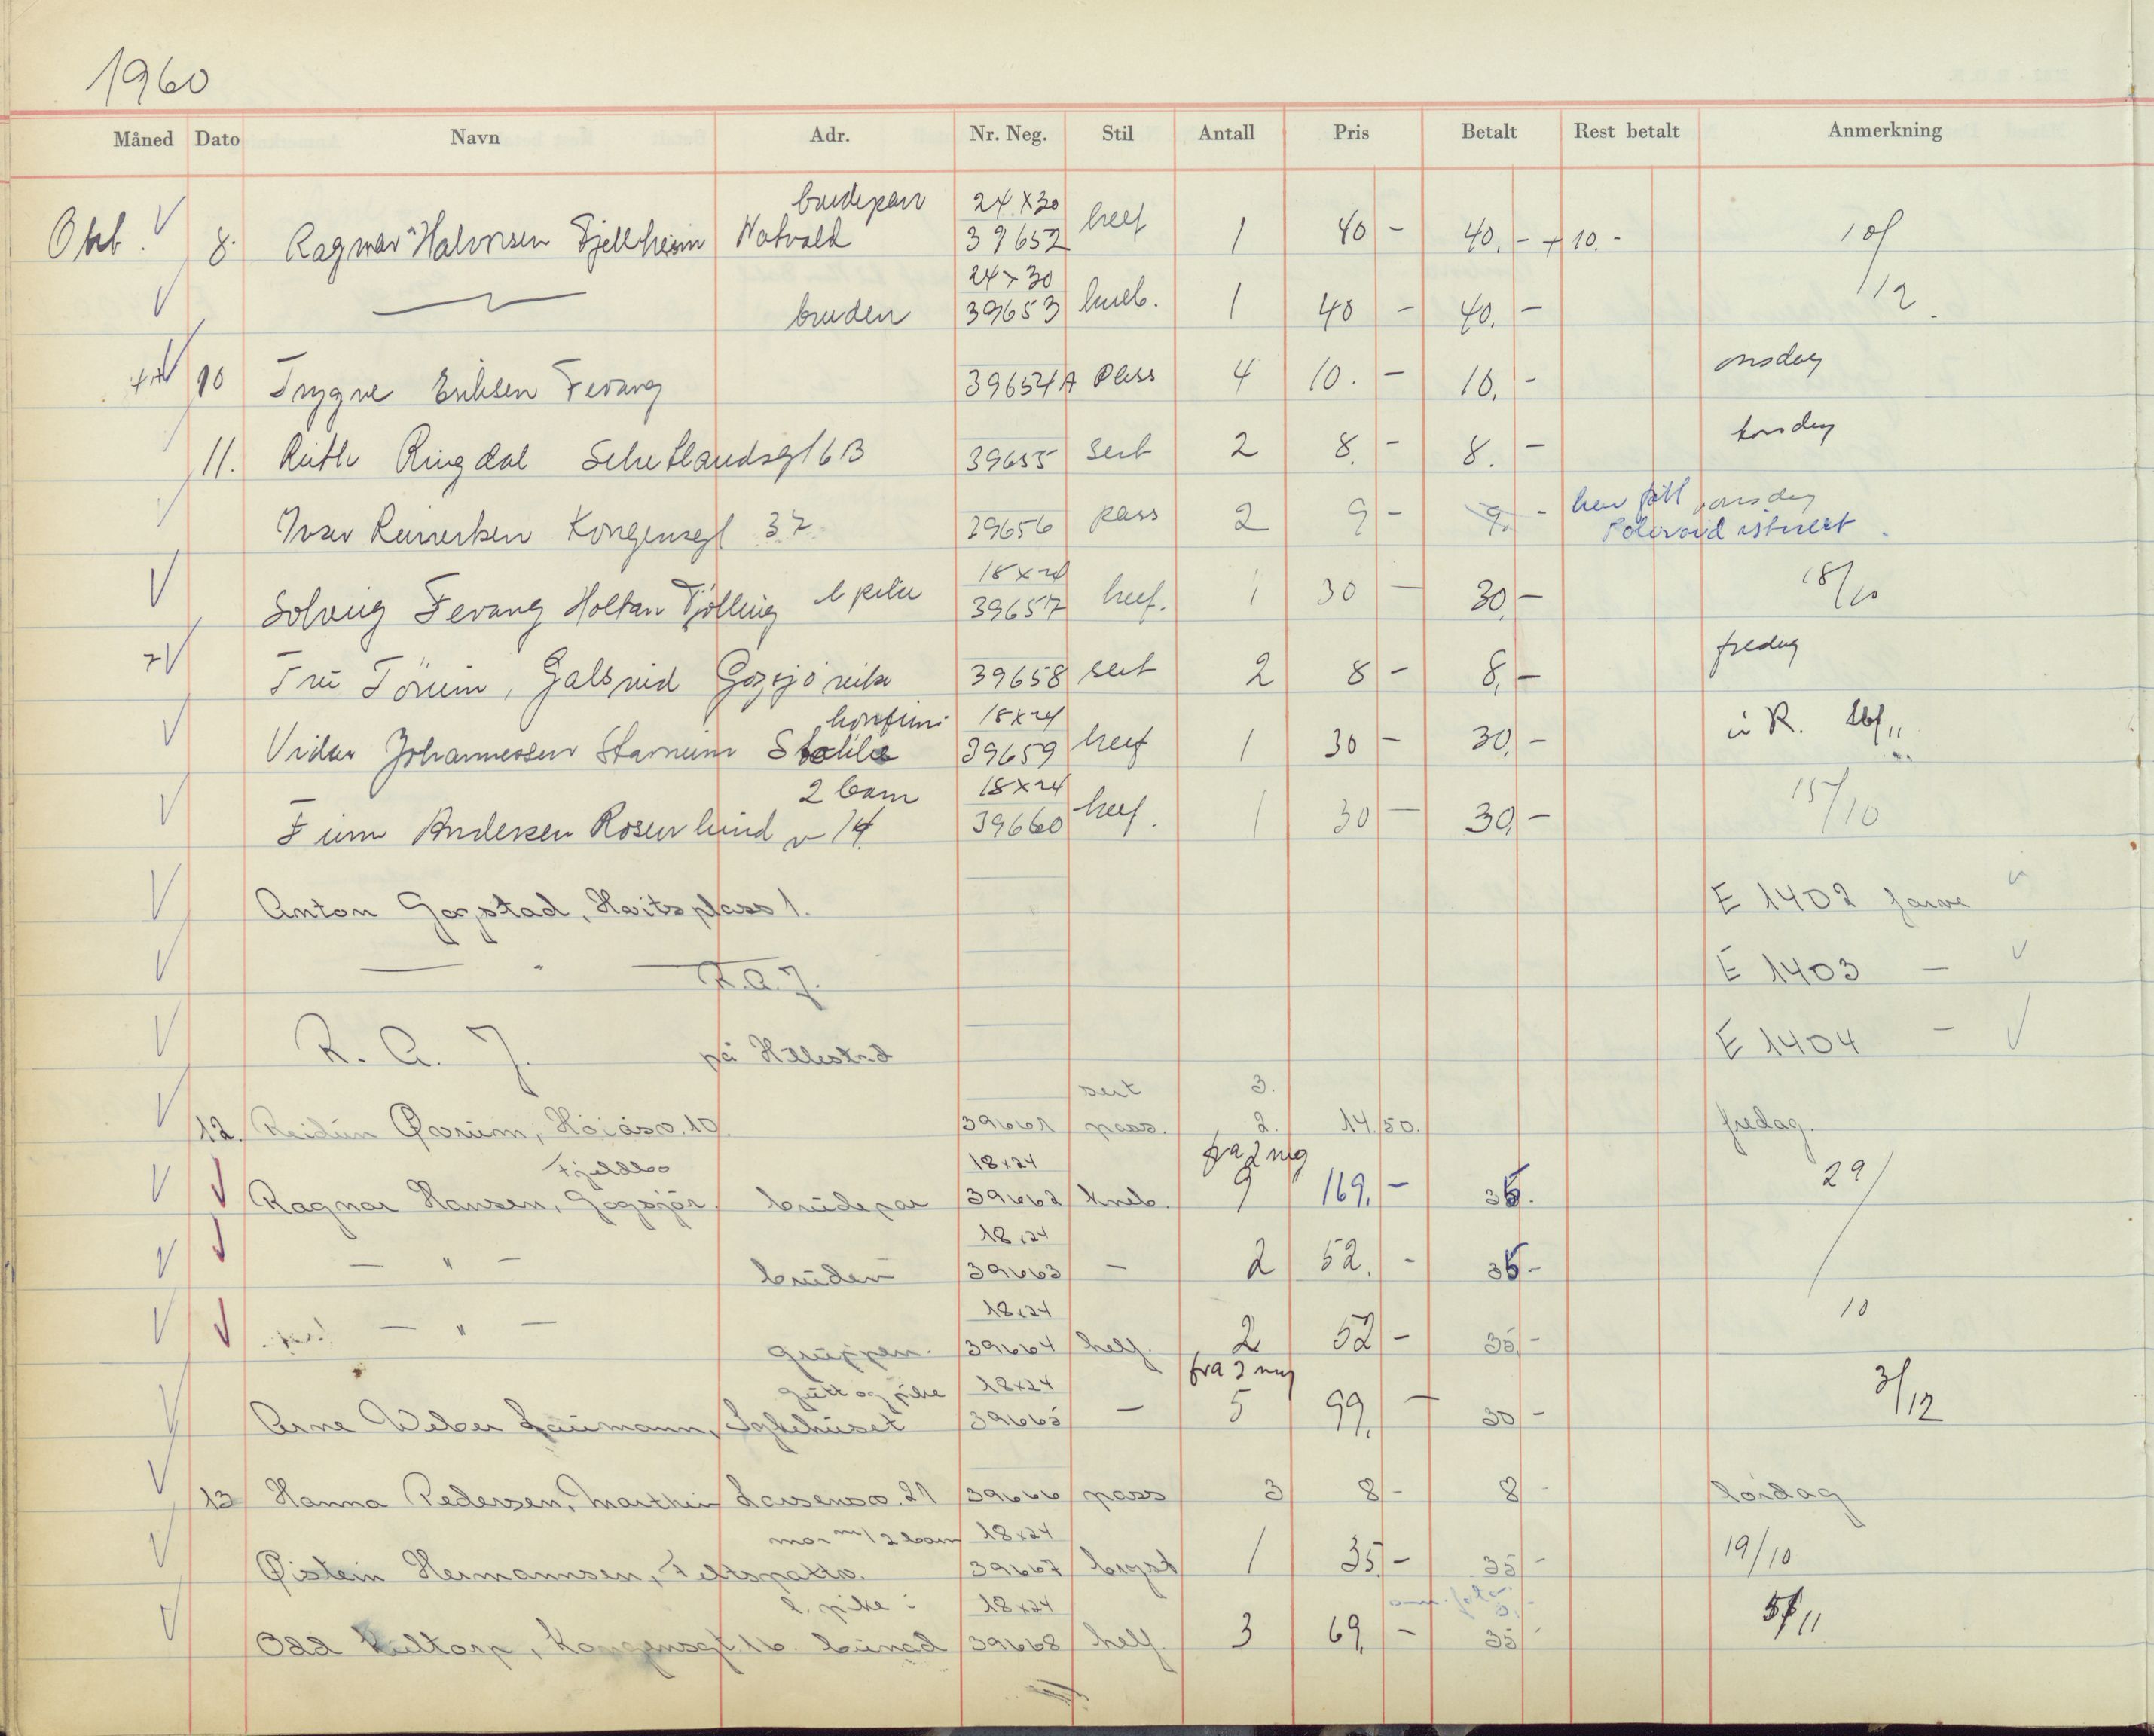 1960
Måned Dato Navn Adr. Nr. Neg. Stil Antall Pris Betalt Rest betalt Anmerkning
brudepar 24x30
Okt. 8. Ragnar Halvorsen Fjellheim 39652 helf 1 40 - 40.- + 10.- 10/12
24x30
bruden 39653 kneb. 1 40 - 40.-
10 Trygve Eriksen Fevang 39654A pass 4 10.- 10.- onsdag
11. Ruth Ringdal 16B 39655 sert 2 8.- 8.- torsdag
Ivar Kongensgt 37 39656 pass 2 9- 9.- har fått onsdag
Polaroid
18x24
Solveig Fevang Holtan Tjølling 39657 helf. 1 30 - 30.- 18/10
39658 sert 2 8- 8,- fredag
konfirm. 18x24
Vidar Johannessen 39659 helf 1 30- 30,- R.
2 barn 18x24
Finn Andersen Rosenlund v 14 39660 helf. 1 30- 30,- 15/10
Anton Gogstad, Haits plass 1. E 1402 farve
— " — R.A.J. E 1403 —
R. A. J. på E 1404 —
sert 3.
12. Reidun 10. 39661 pass. 2. 14.50. fredag.
fra 2 neg
18x24
Ragnar Hansen, brudepar 39662 kneb. 9 169.- 35. 29/10
18x24
— " — bruden 39663 — 2 52.- 35-
18x24
— " — gruppen. 39664 helf. 2 52- 35,-
gutt og pike 18x24 fra 3 neg
Arne Weber Laumann, Sykehuset 39665 — 5 99,- 30- 3/12
13 Hanna Pedersen, Marthin Larsensv. 21 39666 pass 3 8- 8- lördag
mor m/2 barn 18x24
Øistein Hermannsen, 39667 bryst 1 35,- 35- 19/10
l. pike i 18x24
Odd Kultorp, Kongensgt. 16. bunad 39668 helf. 3 69,- 35-